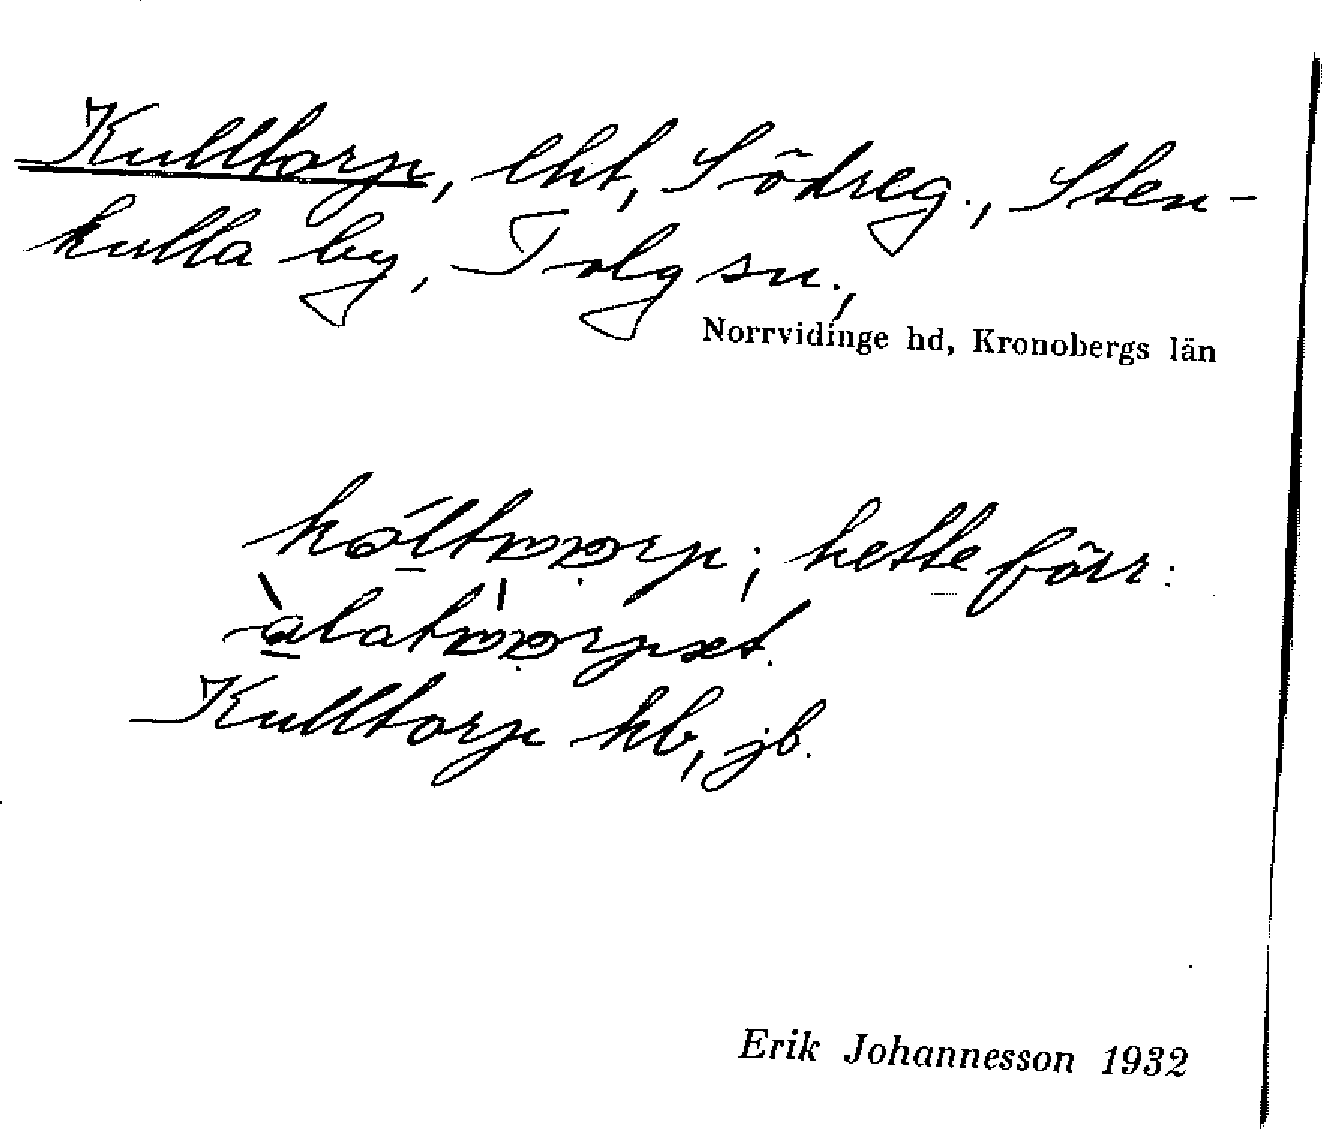 Kulltorp, lht, Södreg., Sten-
kulla by, Tolg sn.,
Norrvidinge hd, Kronobergs län
hette förr:
Kulltorp kb, jb.
Erik Johannesson 1932